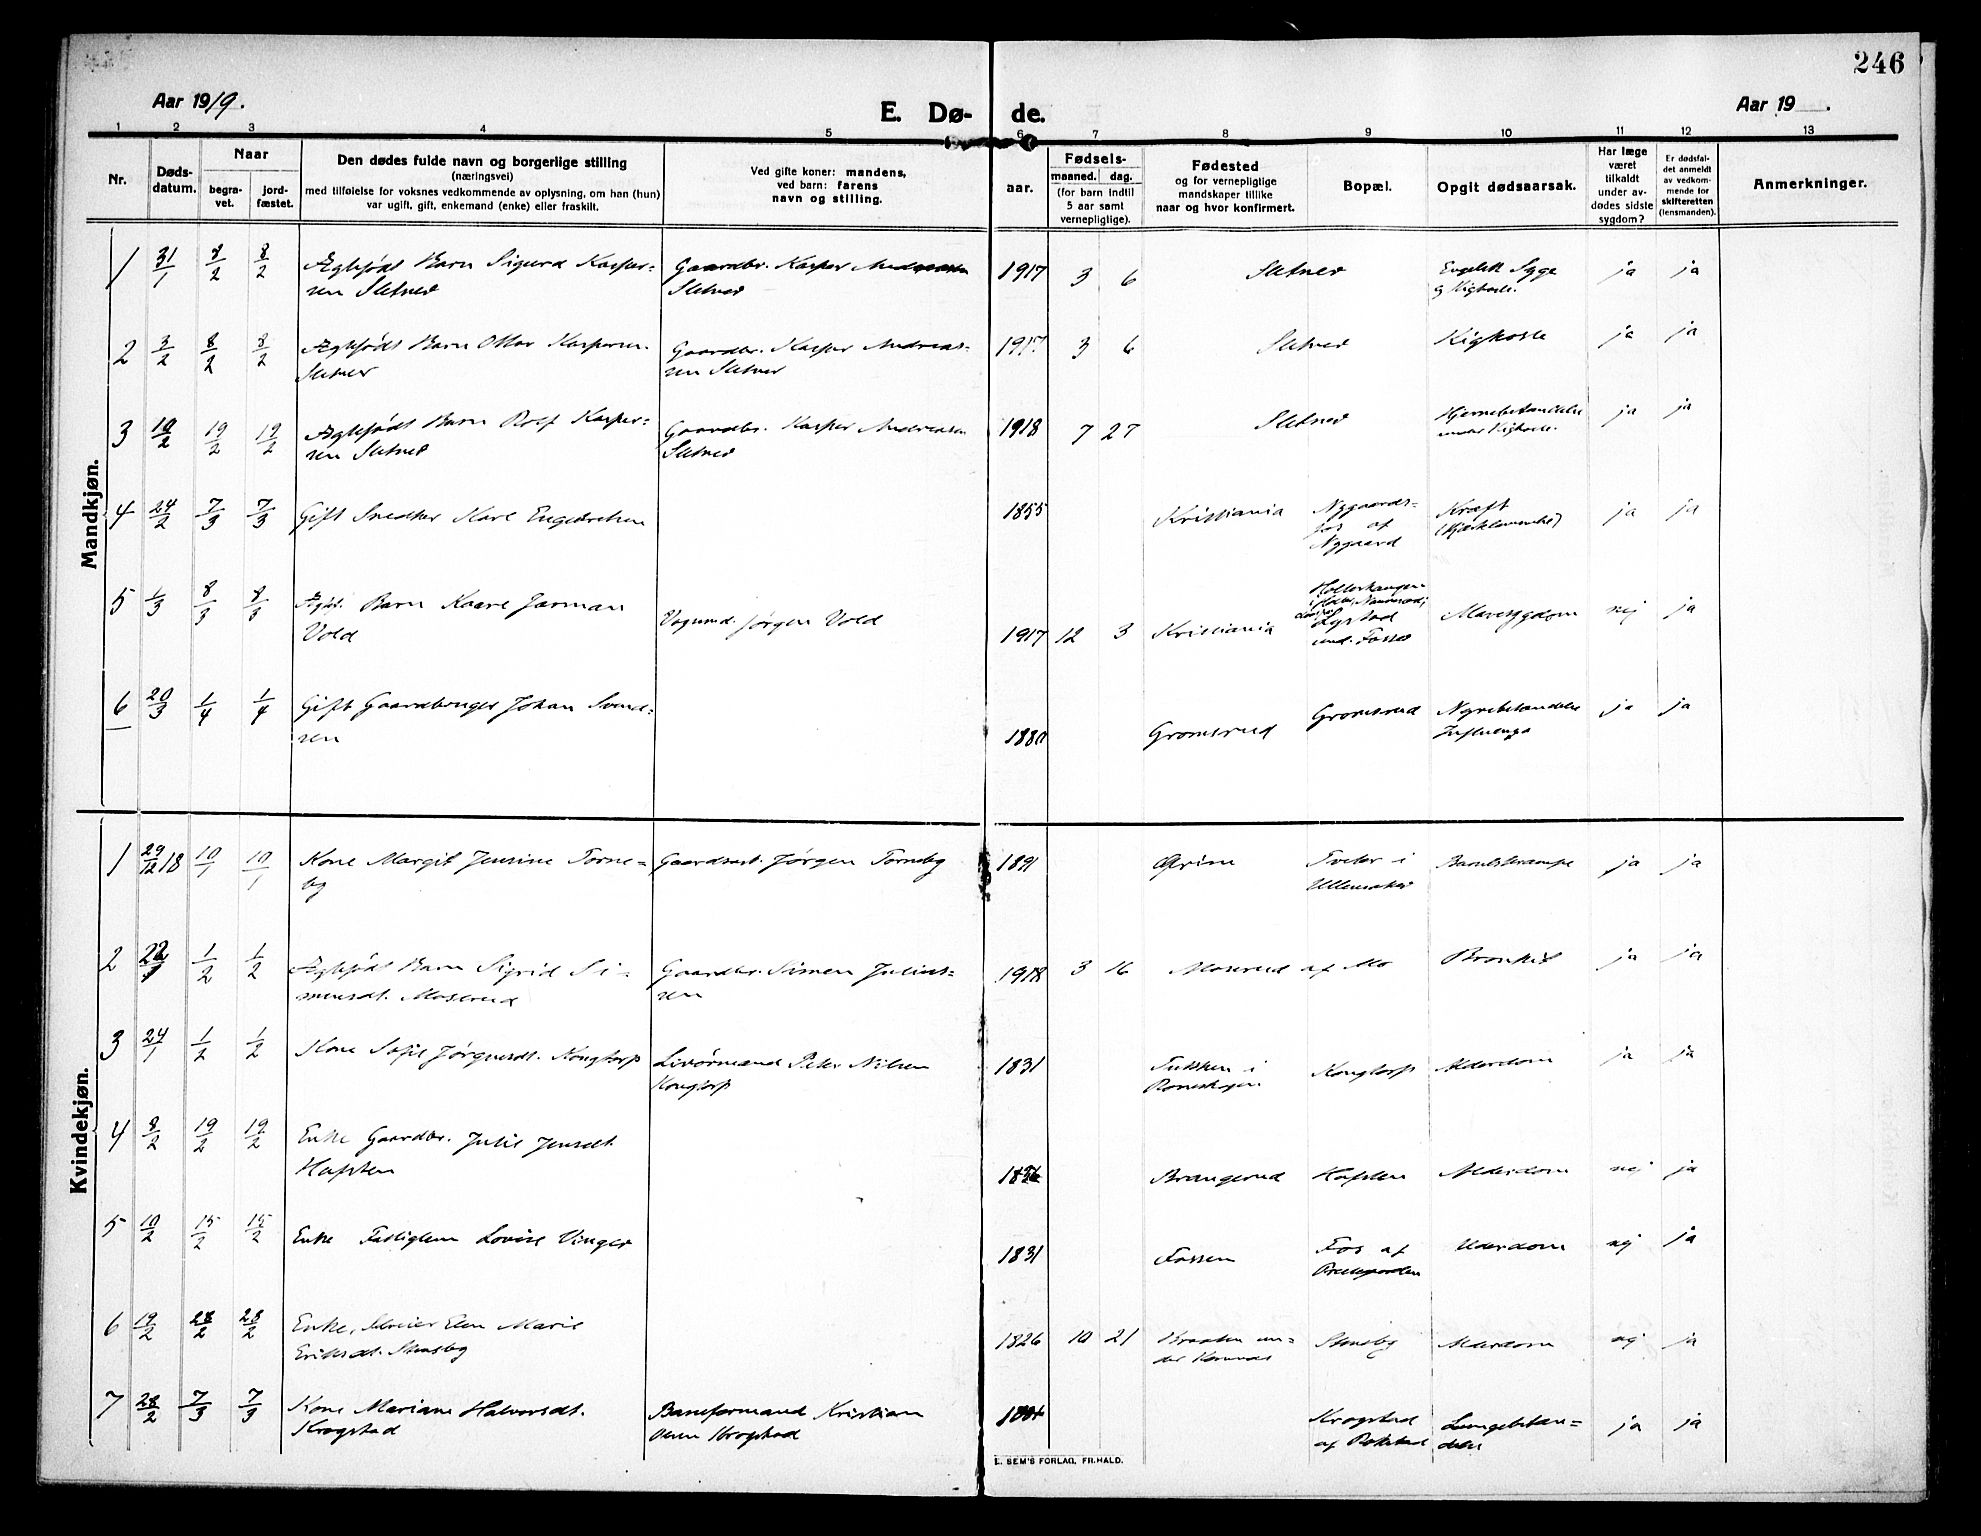 246
Aar 1919.
E. Dø-
de.
Aar 19 .
1 2 3 4 5 6 7 8 9 10 11 12 13
Nr.
Døds-
datum.
Naar
begra-
vet.
jord-
fæstet.
Den dødes fulde navn og borgerlige stilling
(næringsvei)
med tilføielse for voksnes vedkommende av oplysning, om han (hun)
var ugift, gift, enkemand (enke) eller fraskilt.
Ved gifte koner: mandens,
ved barn: farens
navn og stilling.
aar.
Fødsels-
maaned. dag.
(for barn indtil
5 aar samt
vernepligtige).
Fødested
og for vernepligtige
mandskaper tillike
naar og hvor konfirmert.
Bopæl.
Opgit dødsaarsak.
Har læge
været
tilkaldt
under av-
dødes sidste
sygdom?
Er dødsfal-
det anmeldt
av vedkom-
mende for
skifteretten
(lensmanden).
Anmerkninger.
Mandkjøn.
1 31/1 8/2 8/2 Ægtefødt Barn Sigurd Kasper- Gaardbr. Kasper Andreasen 1917 3 6 Sletner Engelsk Syge ja ja
sen Sletner Sletner og Kighoste.
2 3/2 8/2 8/2 Ægtefødt Barn Ottar Kaspersen Gaardbr. Kasper Andreas- 1917 3 6 Sletner Kighoste ja ja
Sletner sen Sletner
3 10/2 19/2 19/2 Ægtefødt Barn Rolf Kasper- Gaardbr. Kasper Andreasen 1918 7 27 Sletner Hjernebetændelse ja ja
sen Sletner Sletner under Kighoste.
4 24/2 7/3 7/3 Gift Snedker Karl Engebretsen 1855 Kristiania Nygaards- Kræft ja ja
fos af
Nygaard
5 1/3 8/3 8/3 Ægtef. Barn Kaare Jarman Vognmd. Jørgen Vold 1917 12 3 Kristiania Lystad Mavesygdom nej ja
Vold und. Fosser
6 20/3 1/4 1/4 Gift Gaardbruger Johan Svend- 1880 Gromsrud Gromsrud Nyrebetændelse ja ja
sen Influenza
Kvindekjøn.
1 29/12 18 10/1 10/1 Kone Margit Jensine Torne- Gaardbest. Jørgen Torneby 1891 Grine Tveter i Barselskrampe ja ja
by Ullensaker
2 22/1 1/2 1/2 Ægtefødt Barn Sigrid Si- Gaardbr. Simen Julius- 1918 3 16 Moserud af Mo Bronkit ja ja
mensdt. Moserud sen
3 24/1 1/2 1/2 Kone Sofie Jørgensdt. Kongtorp Livørmand Peter Nilsen 1831 Tukken i Kongtorp Alderdom ja ja
Kongtorp Romskogen
4 8/2 19/2 19/2 Enke Gaardbr. Julie Jensdt. 1836 Brangerud Haflen Alderdom nej ja
Haflen
5 10/2 15/2 15/2 Enke Fattiglem Lovise Vinger 1831 Fossen Fos af Alderdom nej ja
6 19/2 28/2 28/2 Enke, Elen Marie 1826 10 21 Braaten un- Stensby Alderdom nej ja
Eriksdt. Stensby der
7 28/2 7/3 7/3 Kone Mariane Halvorsdt. Baneformand Kristian Krogstad Lungebetæn- ja ja
Krogstad Olsen Krogstad af Rokstad delse
E. SEM'S FORLAG, FR.HALD.